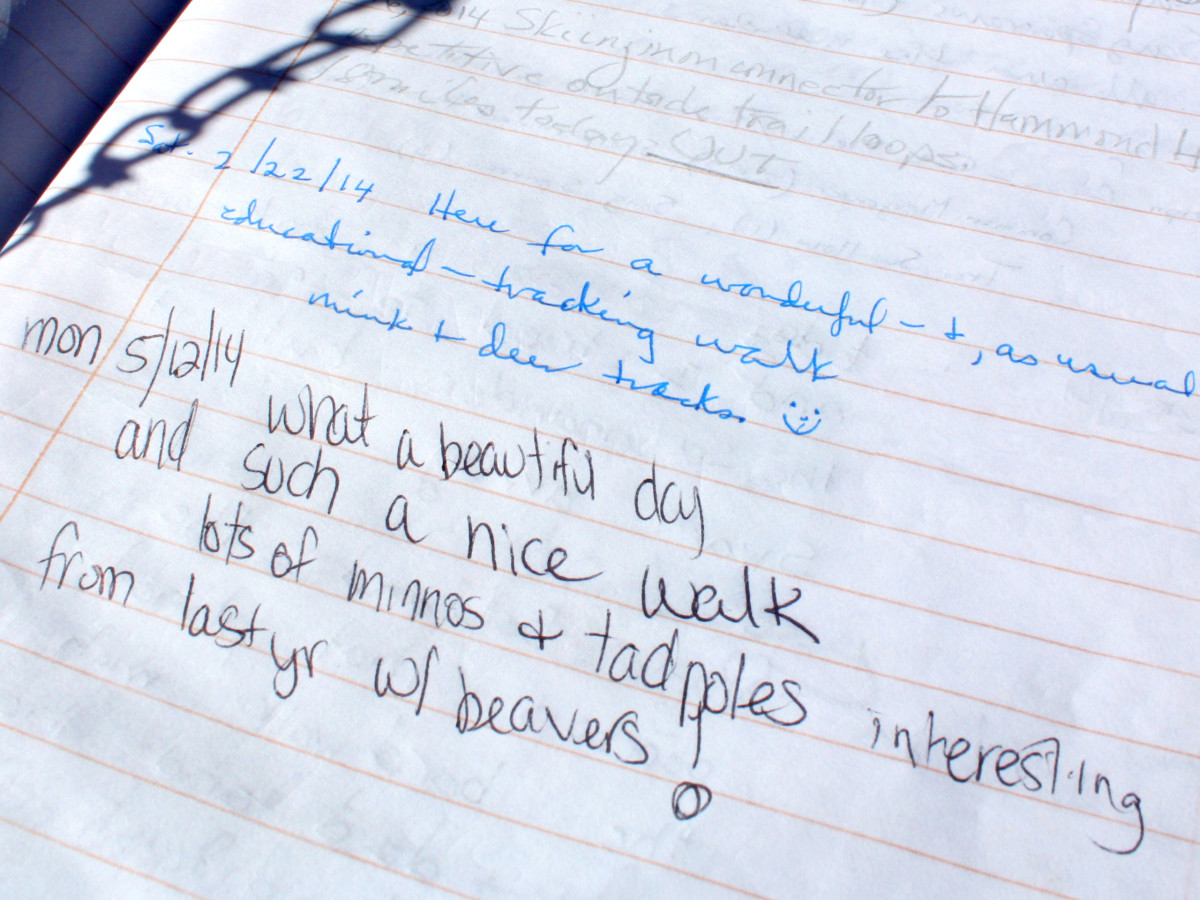 2014 Skiing in connector to Hammond
outside trail loops.
today. OUT
Sat. 2/22/14 Here for a wonderful - +, as usual
educational - tracking walk
mink + deer tracks.
mon 5/12/14 what a beautiful day
and such a nice walk
lots of minnos + tadpoles interesting
from last yr w/ beavers!